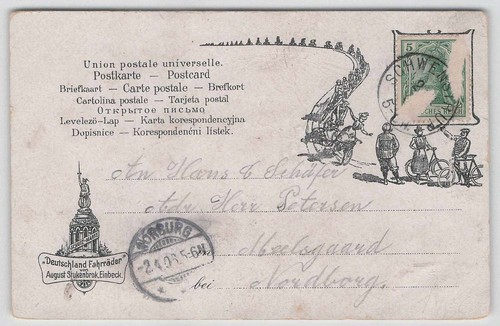 Union postale universelle.
Postkarte — Postcard
Briefkaart — Carte postale — Brefkort
Cartolina postale — Tarjeta postal
Открытое письмо
Levelező-Lap — Karta korespondencyjna
Dopisnice — Korespondenční lístek.
5
SCHWEN
An Hans C Schäfer
Adr Herr Petersen
Meelsgaard
bei Nordborg.
NORBURG
2.4.03.5-6N
"Deutschland Fahrräder"
von
August Stukenbrok, Einbeck.